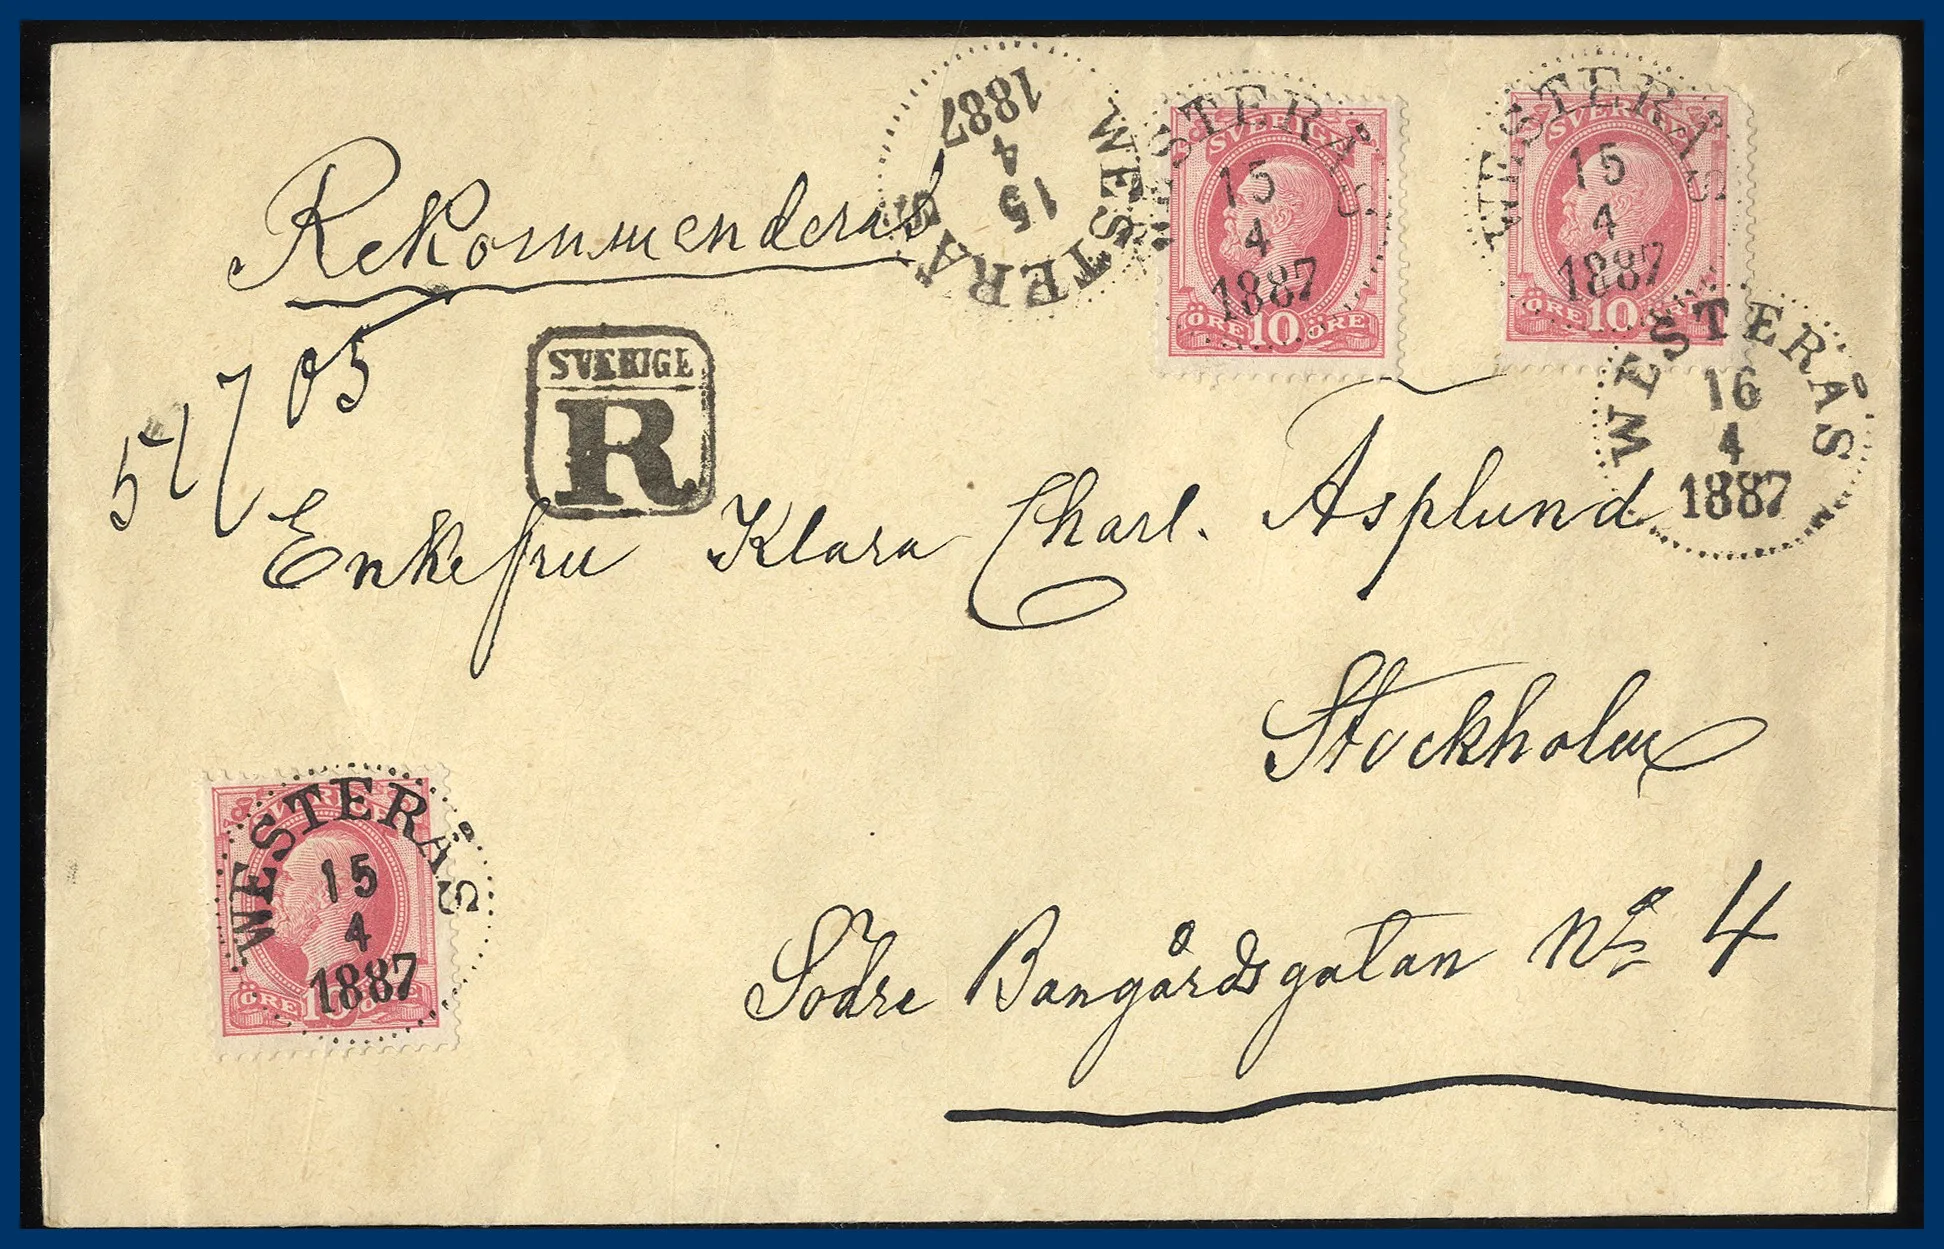 Rekommenderas
WESTERÅS
15
4
1887
WESTERÅS
15
4
1887
SVERIGE
ÖRE 10 ÖRE
WESTERÅS
15
4
1887
SVERIGE
ÖRE 10 ÖRE
WESTERÅS
16
4
1887
SVERIGE
R
Enkefru Klara Charl. Asplund
Stockholm
WESTERÅS
15
4
1887
SVERIGE
ÖRE 10 ÖRE
Södre Bangårdsgatan No 4